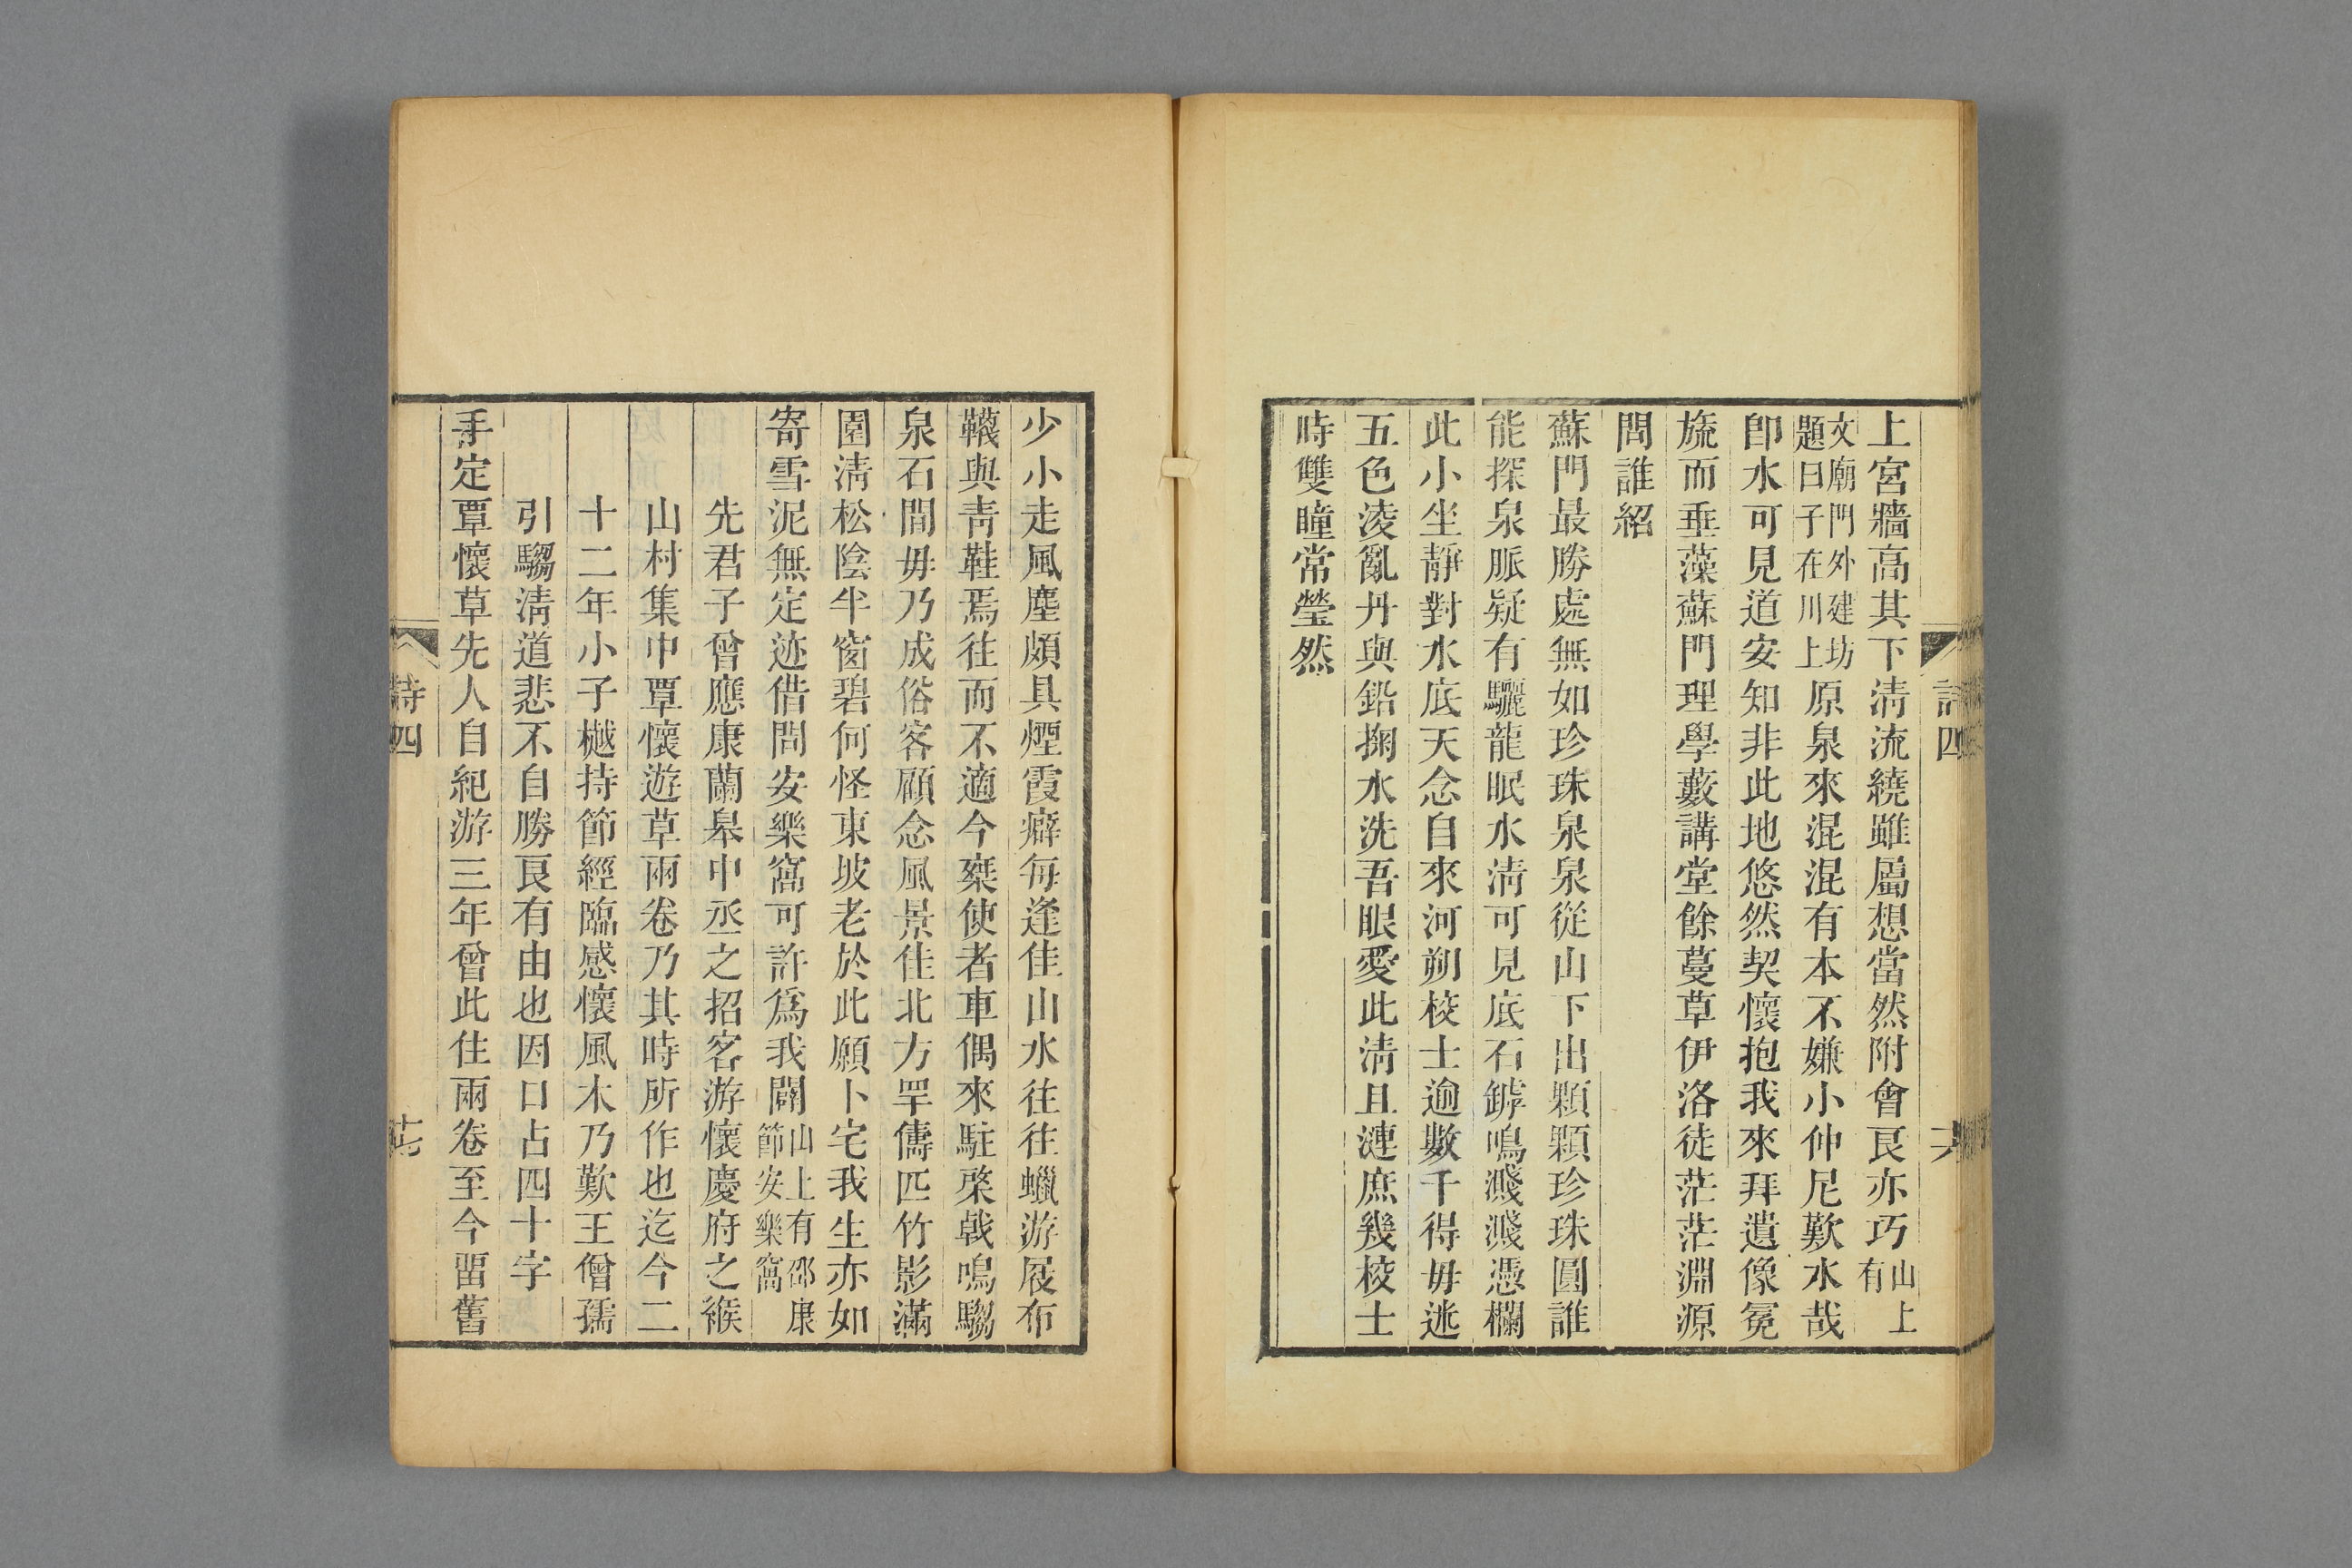 詩四
上宮牆高其下清流繞雖屬想當然附會良亦巧山上有
文廟門外建坊題曰子在川上原泉來混混有本不嫌小仲尼歎水哉
卽水可見道安知非此地悠然契懷抱我來拜遺像冕
旒而垂藻蘇門理學藪講堂餘蔓草伊洛徒茫茫淵源
問誰紹
蘇門最勝處無如珍珠泉泉從山下出顆顆珍珠圓誰
能探泉脈疑有驪龍眠水清可見底石罅鳴濺濺憑欄
此小坐靜對水底天念自來河朔校士逾數千得毋迷
五色淩亂丹與鉛掬水洗吾眼愛此清且漣庶幾校士
時雙瞳常瑩然
少小走風塵頗具煙霞癖每逢佳山水往往蠟游屐布
韈與青鞋焉往而不適今乘使者車偶來駐棨戟鳴騶
泉石間毋乃成俗客顧念風景佳北方罕儔匹竹影滿
園清松陰半窗碧何怪東坡老於此願卜宅我生亦如
寄雪泥無定迹借問安樂窩可許爲我闢山上有邵康節安樂窩
先君子曾應康蘭皋中丞之招客游懷慶府之緱
山村集中覃懷遊草兩卷乃其時所作也迄今二
十二年小子樾持節經臨感懷風木乃歎王僧孺
引騶清道悲不自勝良有由也因口占四十字
手定覃懷草先人自紀游三年曾此住兩卷至今畱舊
詩四
十七